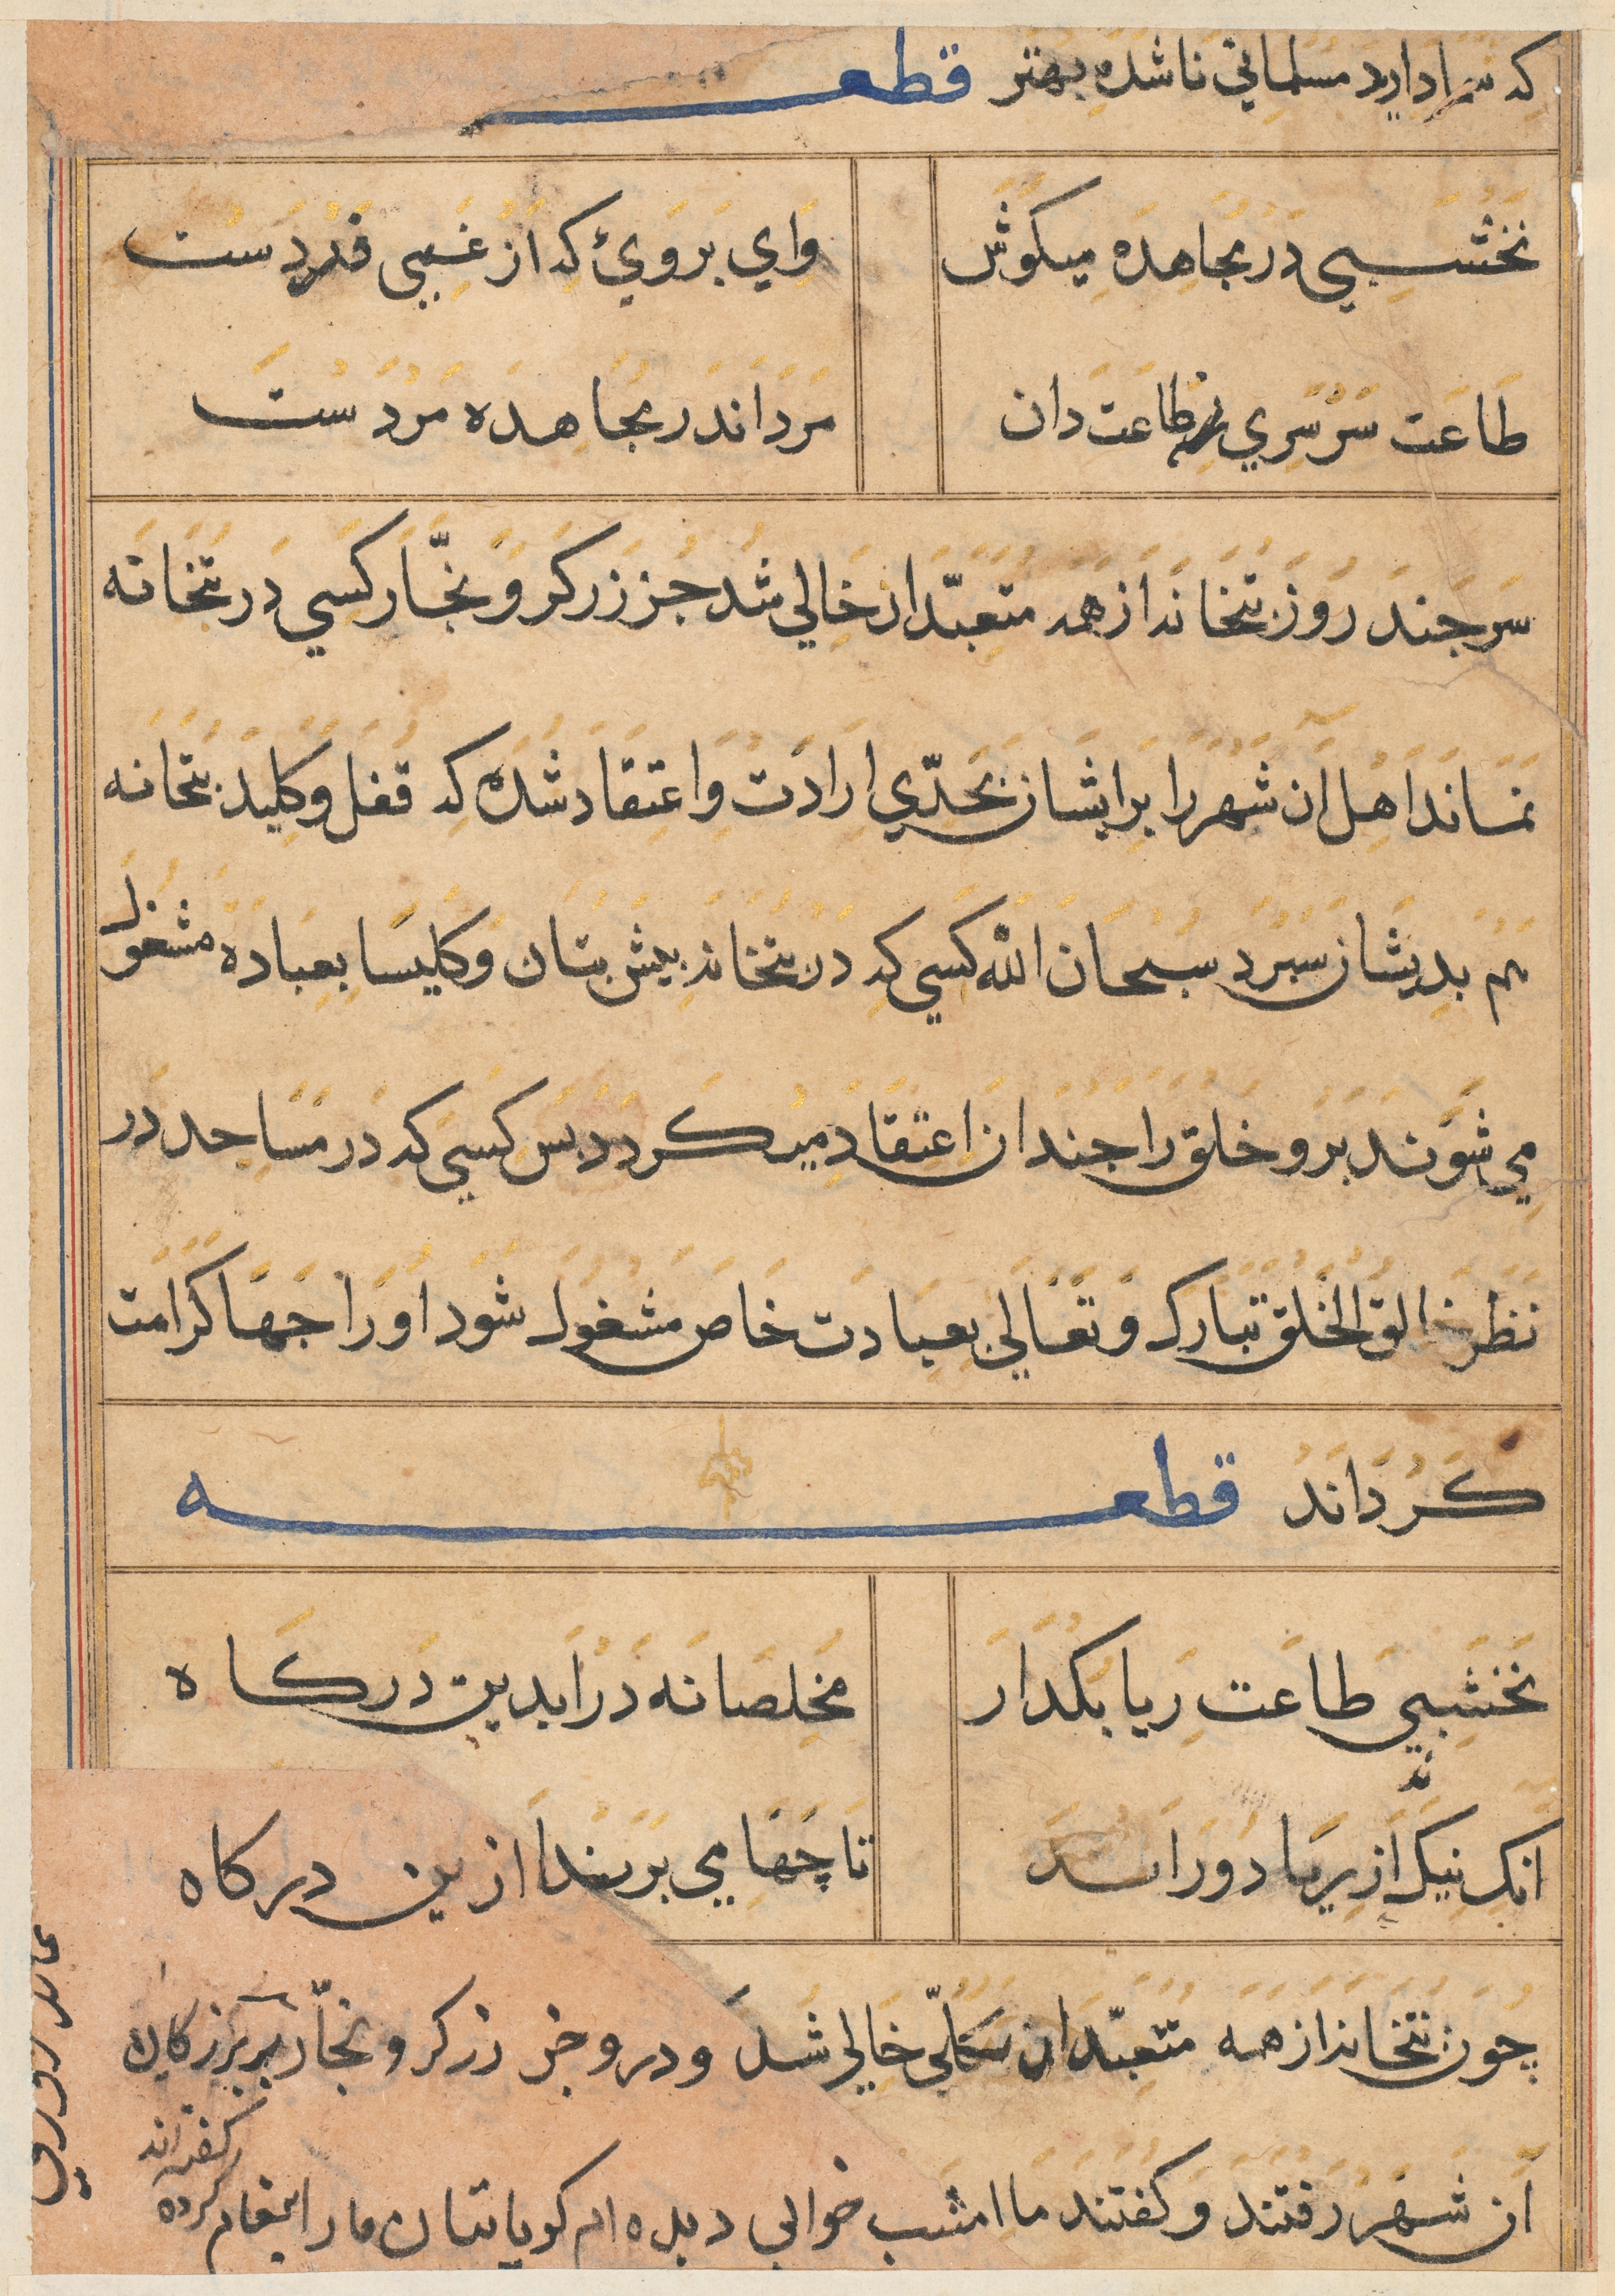 که سزا دارد مسلمانی ناشده بهتر قطعـ
نخشبی در مجاهده میکوش وای بروی که از غیبی فردست
طاعت سرسری نه طاعت دان مرد اندر مجاهده مردست
سر جند روز بتخانه از همه متعبدان خالی شد جز زرکر و نجّار کسی در بتخانه
نماند اهل آن شهر را بر ایشان بحدّی ارادت و اعتقاد شده که قفل و کلید بتخانه
هم بدیشان سبرد سبحان الله کسی که در بتخانه بیش بتان و کلیسا بعباده مشغول
می شوند برو خلق را جندان اعتقاد میکردد بس کسی که در مساجد در
نظر خالق الخلق تبارک و تعالی بعبادت خاص مشغول شود او را جها کرامت
کرداند قطعه
نخشبی طاعت ریا بکدار مخلصانه درا بدین درکاه
انک نیک از ریا دور اند تا چها می برند ازین درکاه
چون بتخانه از همه متعبدان بکلّی خالی شد و درو جز زرکر و نجّار بر بزرکان
آن شهر رفتند و کفتند ما امشب خوابی دیده ام کویا بتان ما را بیغام کرده
کفته اند